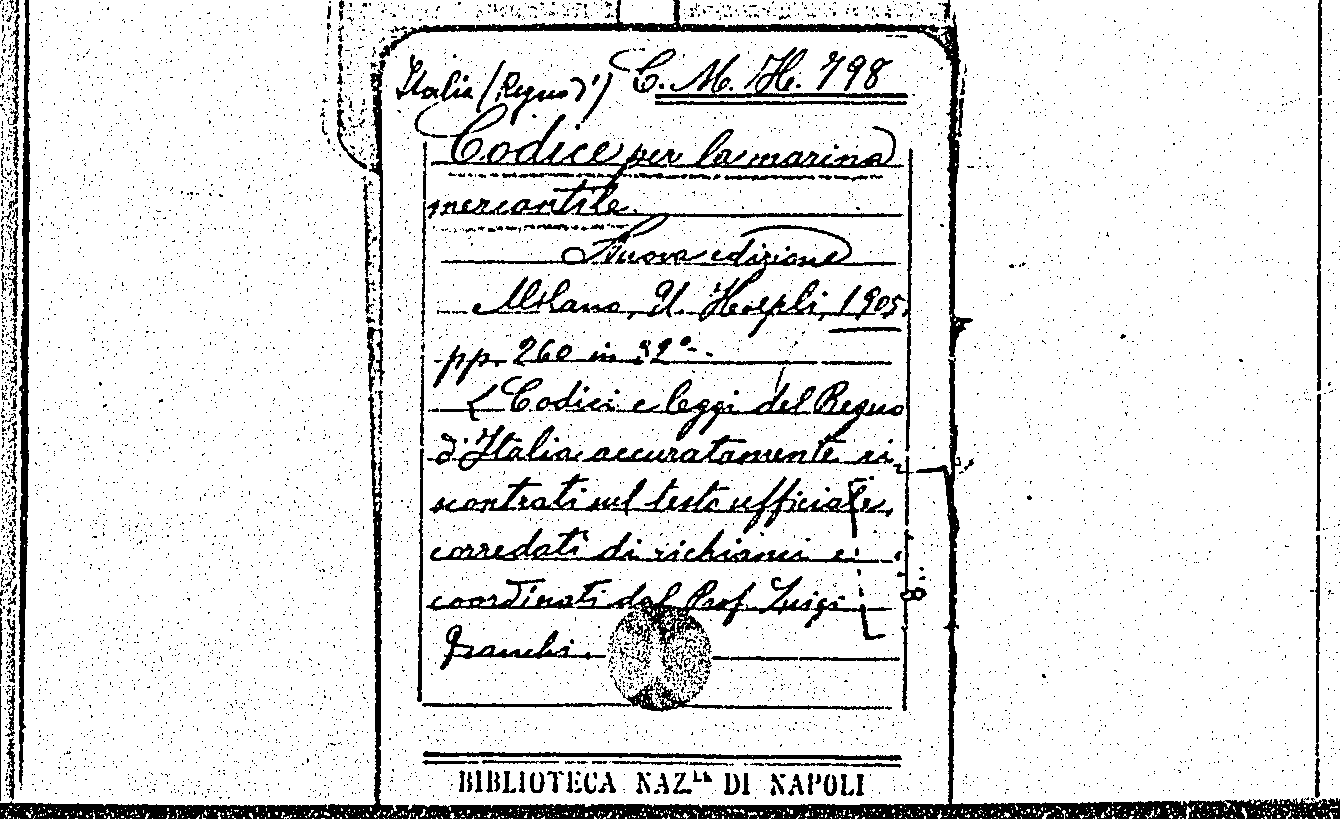 Italia (Regno d') C. M. H. 798
Codice per la marina
mercantile.
Nuova edizione
Milano, U. Hoepli, 1905,
pp. 260 in 32°.
(Codici e leggi del Regno
d'Italia accuratamente ri-
scontrati sul testo ufficiale,
corredati di richiami e
coordinati dal Prof. Luigi
Franchi.
BIBLIOTECA NAZ.LA DI NAPOLI